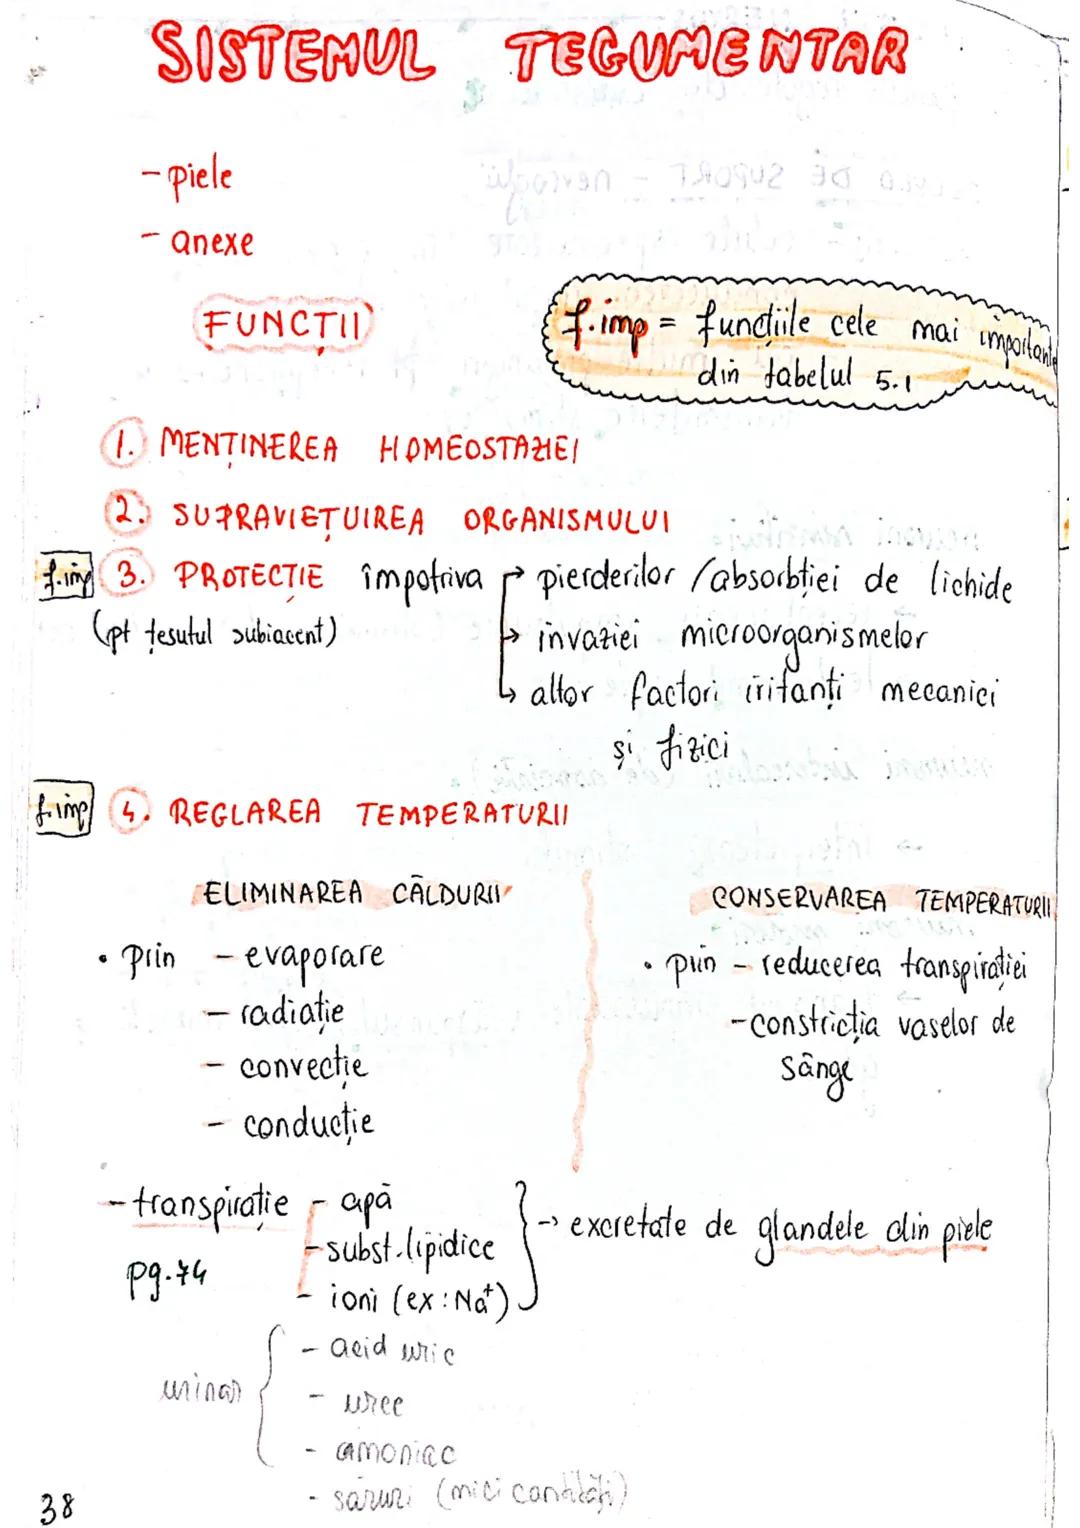 SISTEMUL TEGUMENTAR
- piele
- anexe
FUNCȚII
f.imp = funcțiile cele mai importante
din tabelul 5.1
1. MENȚINEREA HOMEOSTAZIEI
2. SUPRAVIEȚUIREA ORGANISMULUI
f.imp 3. PROTECȚIE împotriva → pierderilor /absorbției de lichide
(pt țesutul subiacent) → invaziei microorganismelor
→ altor factori iritanți mecanici
și fizici
f.imp 4. REGLAREA TEMPERATURII
ELIMINAREA CĂLDURII
• prin - evaporare
- radiație
- convecție
- conducție
CONSERVAREA TEMPERATURII
• prin - reducerea transpirației
- constricția vaselor de
sânge
- transpirație - apă
- subst. lipidice → excretate de glandele din piele
pg. 74 - ioni (ex: Na⁺)
- acid uric
urinar - uree
- amoniac
- săruri (mici cantități)
38